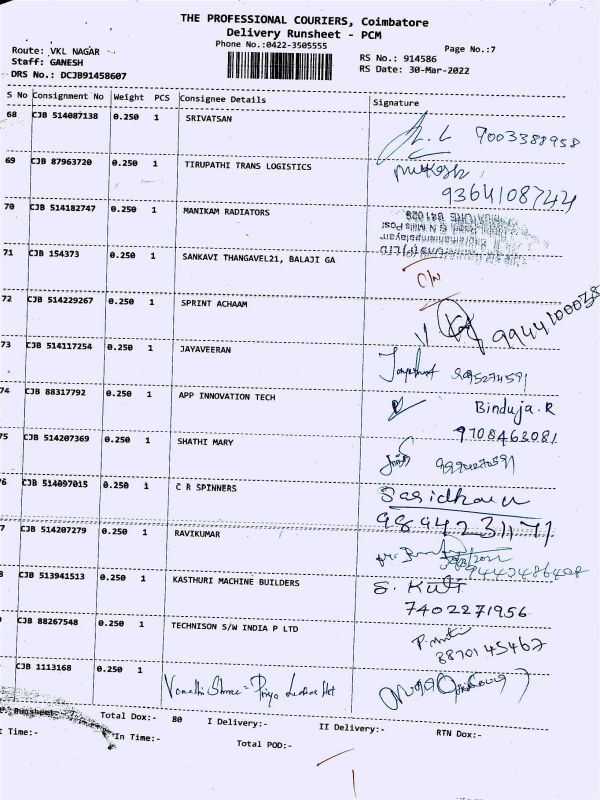 THE PROFESSIONAL COURIERS, Coimbatore
Delivery Runsheet - PCM
Phone No.:0422-3505555
Page No.:7
Route: VKL NAGAR
Staff: GANESH
DRS No.: DCJB91458607
RS No.: 914586
RS Date: 30-Mar-2022
S No Consignment No Weight PCS Consignee Details Signature
68 CJB 514087138 0.250 1 SRIVATSAN 7003388958
69 CJB 87963720 0.250 1 TIRUPATHI TRANS LOGISTICS Mukesh
9364108744
70 CJB 514182747 0.250 1 MANIKAM RADIATORS
71 CJB 154373 0.250 1 SANKAVI THANGAVEL21, BALAJI GA C/N
72 CJB 514229267 0.250 1 SPRINT ACHAAM 9944100038
73 CJB 514117254 0.250 1 JAYAVEERAN
74 CJB 88317792 0.250 1 APP INNOVATION TECH Binduja.R
9708463081
75 CJB 514207369 0.250 1 SHATHI MARY
6 CJB 514097015 0.250 1 C R SPINNERS Sasidharan
9894231171
7 CJB 514207279 0.250 1 RAVIKUMAR
8 CJB 513941513 0.250 1 KASTHURI MACHINE BUILDERS S. Kutti
7402271956
CJB 88267548 0.250 1 TECHNISON S/W INDIA P LTD
8870145462
CJB 1113168 0.250 1
Runsheet Total Dox:- 80 I Delivery:- II Delivery:- RTN Dox:-
t Time:- In Time:- Total POD:-